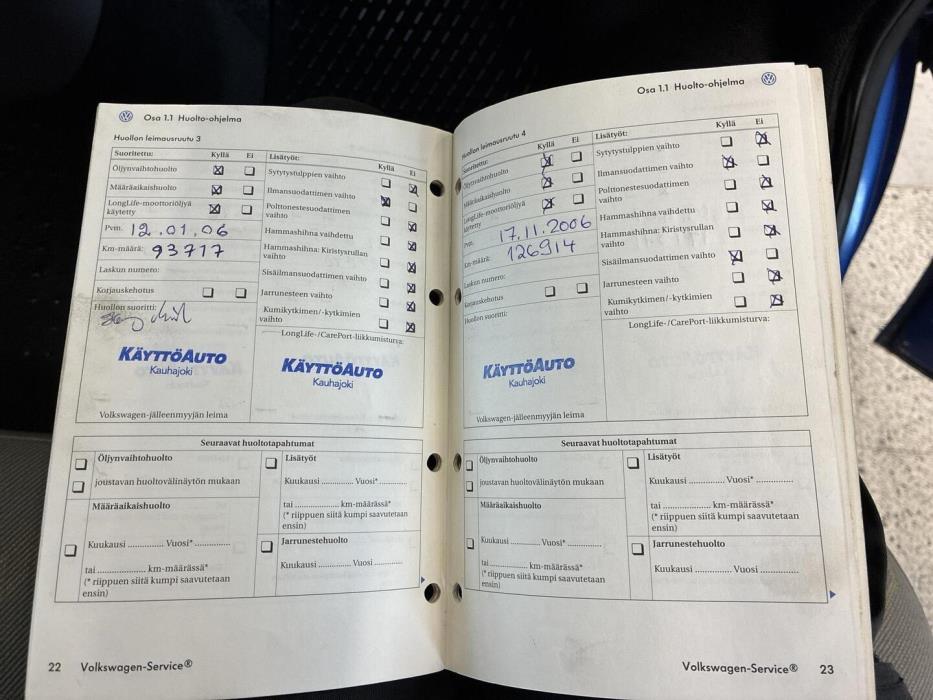 Osa 1.1 Huolto-ohjelma
Huollon leimausruutu 3
Suoritettu: Kyllä Ei
Öljynvaihtohuolto
Määräaikaishuolto
LongLife-moottoriöljyä
käytetty
Pvm. 12.01.06
Km-määrä: 93717
Laskun numero:
Korjauskehotus
Huollon suoritti:
Lisätyöt: Kyllä Ei
Sytytystulppien vaihto
Ilmansuodattimen vaihto
Polttonestesuodattimen
vaihto
Hammashihna vaihdettu
Hammashihna: Kiristysrullan
vaihto
Sisäilmansuodattimen vaihto
Jarrunesteen vaihto
Kumikytkimen/-kytkimien
vaihto
LongLife-/CarePort-liikkumisturva:
KÄYTTÖAUTO
Kauhajoki
KÄYTTÖAUTO
Kauhajoki
Volkswagen-jälleenmyyjän leima
Seuraavat huoltotapahtumat
Öljynvaihtohuolto
joustavan huoltovälinäytön mukaan
Määräaikaishuolto
Kuukausi .............. Vuosi* ..............
tai .................. km-määrässä*
(* riippuen siitä kumpi saavutetaan
ensin)
Lisätyöt
Kuukausi ............. Vuosi* ...........
tai .................. km-määrässä*
(* riippuen siitä kumpi saavutetaan
ensin)
Jarrunestehuolto
Kuukausi .............. Vuosi ..............
22 Volkswagen-Service®
Osa 1.1 Huolto-ohjelma
Huollon leimausruutu 4
Suoritettu: Kyllä Ei
Öljynvaihtohuolto
Määräaikaishuolto
LongLife-moottoriöljyä
käytetty
Pvm. 17.11.2006
Km-määrä: 126914
Laskun numero:
Korjauskehotus
Huollon suoritti:
Lisätyöt: Kyllä Ei
Sytytystulppien vaihto
Ilmansuodattimen vaihto
Polttonestesuodattimen
vaihto
Hammashihna vaihdettu
Hammashihna: Kiristysrullan
vaihto
Sisäilmansuodattimen vaihto
Jarrunesteen vaihto
Kumikytkimen/-kytkimien
vaihto
LongLife-/CarePort-liikkumisturva:
KÄYTTÖAUTO
Kauhajoki
Volkswagen-jälleenmyyjän leima
Seuraavat huoltotapahtumat
Öljynvaihtohuolto
joustavan huoltovälinäytön mukaan
Määräaikaishuolto
Kuukausi .............. Vuosi* ..............
tai .................. km-määrässä*
(* riippuen siitä kumpi saavutetaan
ensin)
Lisätyöt
Kuukausi .............. Vuosi* ..............
tai .................. km-määrässä*
(* riippuen siitä kumpi saavutetaan
ensin)
Jarrunestehuolto
Kuukausi .............. Vuosi ..............
Volkswagen-Service® 23